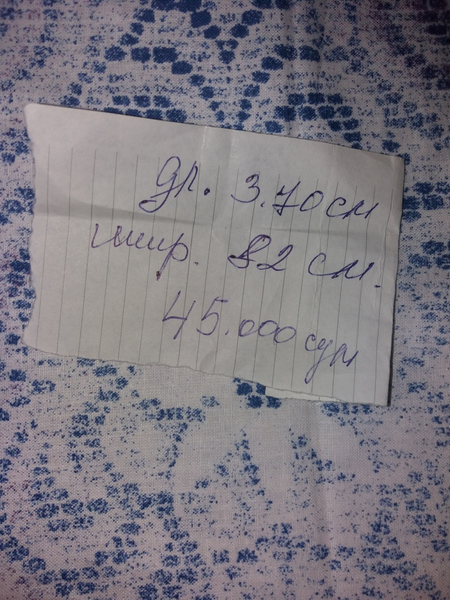 дл. 3.70см
шир. 82 см.
45.000 сум